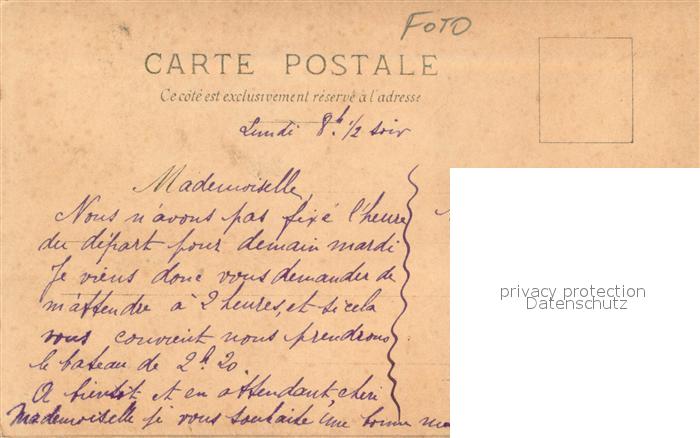 FOTO
CARTE POSTALE
Ce côté est exclusivement réservé à l'adresse
Lundi 8h. 1/2 soir
Mademoiselle,
Nous n'avons pas fixé l'heure
du départ pour demain mardi
Je viens donc vous demander de
m'attendre à 2 heures, et si cela
vous convient nous prendrons
le bateau de 2h 20.
A bientôt et en attendant, cheri
Mademoiselle je vous souhaite une bonne
privacy protection
Datenschutz